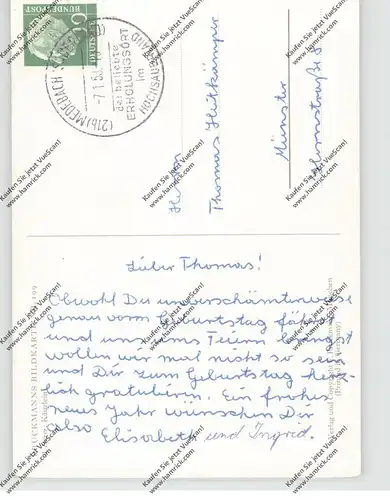 DEUTSCHE BUNDESPOST
(21b) MEDEBACH
-7.1.58
der beliebte
ERHOLUNGSORT
im
HOCHSAUERLAND
Herrn
Thomas Heitkämper
Münster
Lieber Thomas!
Obwohl Du unverschämterweise
genau vorm Geburtstag fährst
und uns ums Feiern bringst
wollen wir mal nicht so sein
und Dir zum Geburtstag herz-
lich gratulieren. Ein frohes
neues Jahr wünschen Dir
also Elisabeth und Ingrid.
BRUCKMANNS BILDKARTE
Verlag und Copyright
(Printed in Germany)
Kaufen Sie jetzt VueScan!
www.hamrick.com